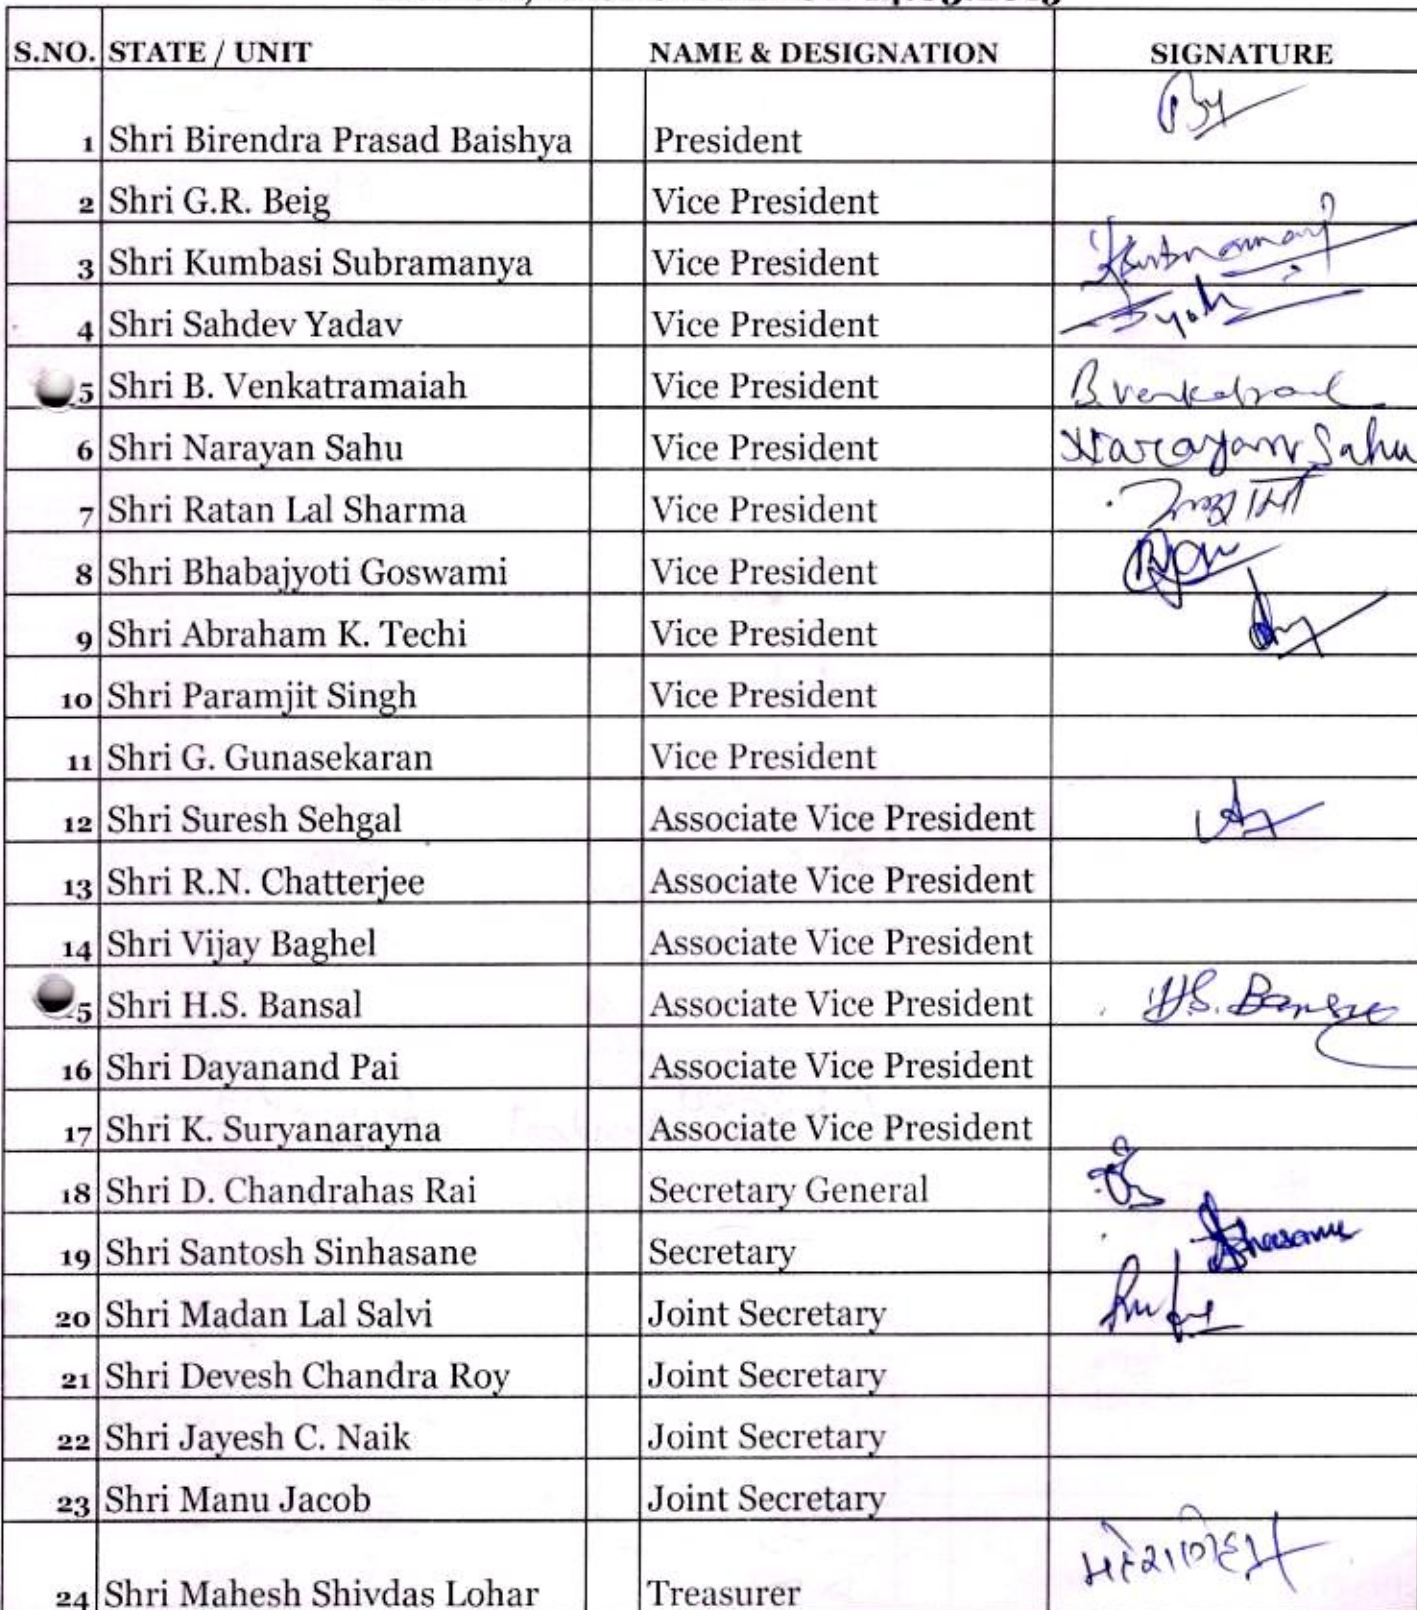 S.NO. STATE / UNIT NAME & DESIGNATION SIGNATURE
1 Shri Birendra Prasad Baishya President
2 Shri G.R. Beig Vice President
3 Shri Kumbasi Subramanya Vice President
4 Shri Sahdev Yadav Vice President
5 Shri B. Venkatramaiah Vice President
6 Shri Narayan Sahu Vice President Narayan Sahu
7 Shri Ratan Lal Sharma Vice President
8 Shri Bhabajyoti Goswami Vice President
9 Shri Abraham K. Techi Vice President
10 Shri Paramjit Singh Vice President
11 Shri G. Gunasekaran Vice President
12 Shri Suresh Sehgal Associate Vice President
13 Shri R.N. Chatterjee Associate Vice President
14 Shri Vijay Baghel Associate Vice President
5 Shri H.S. Bansal Associate Vice President H.S. Bansal
16 Shri Dayanand Pai Associate Vice President
17 Shri K. Suryanarayna Associate Vice President
18 Shri D. Chandrahas Rai Secretary General
19 Shri Santosh Sinhasane Secretary
20 Shri Madan Lal Salvi Joint Secretary
21 Shri Devesh Chandra Roy Joint Secretary
22 Shri Jayesh C. Naik Joint Secretary
23 Shri Manu Jacob Joint Secretary
24 Shri Mahesh Shivdas Lohar Treasurer